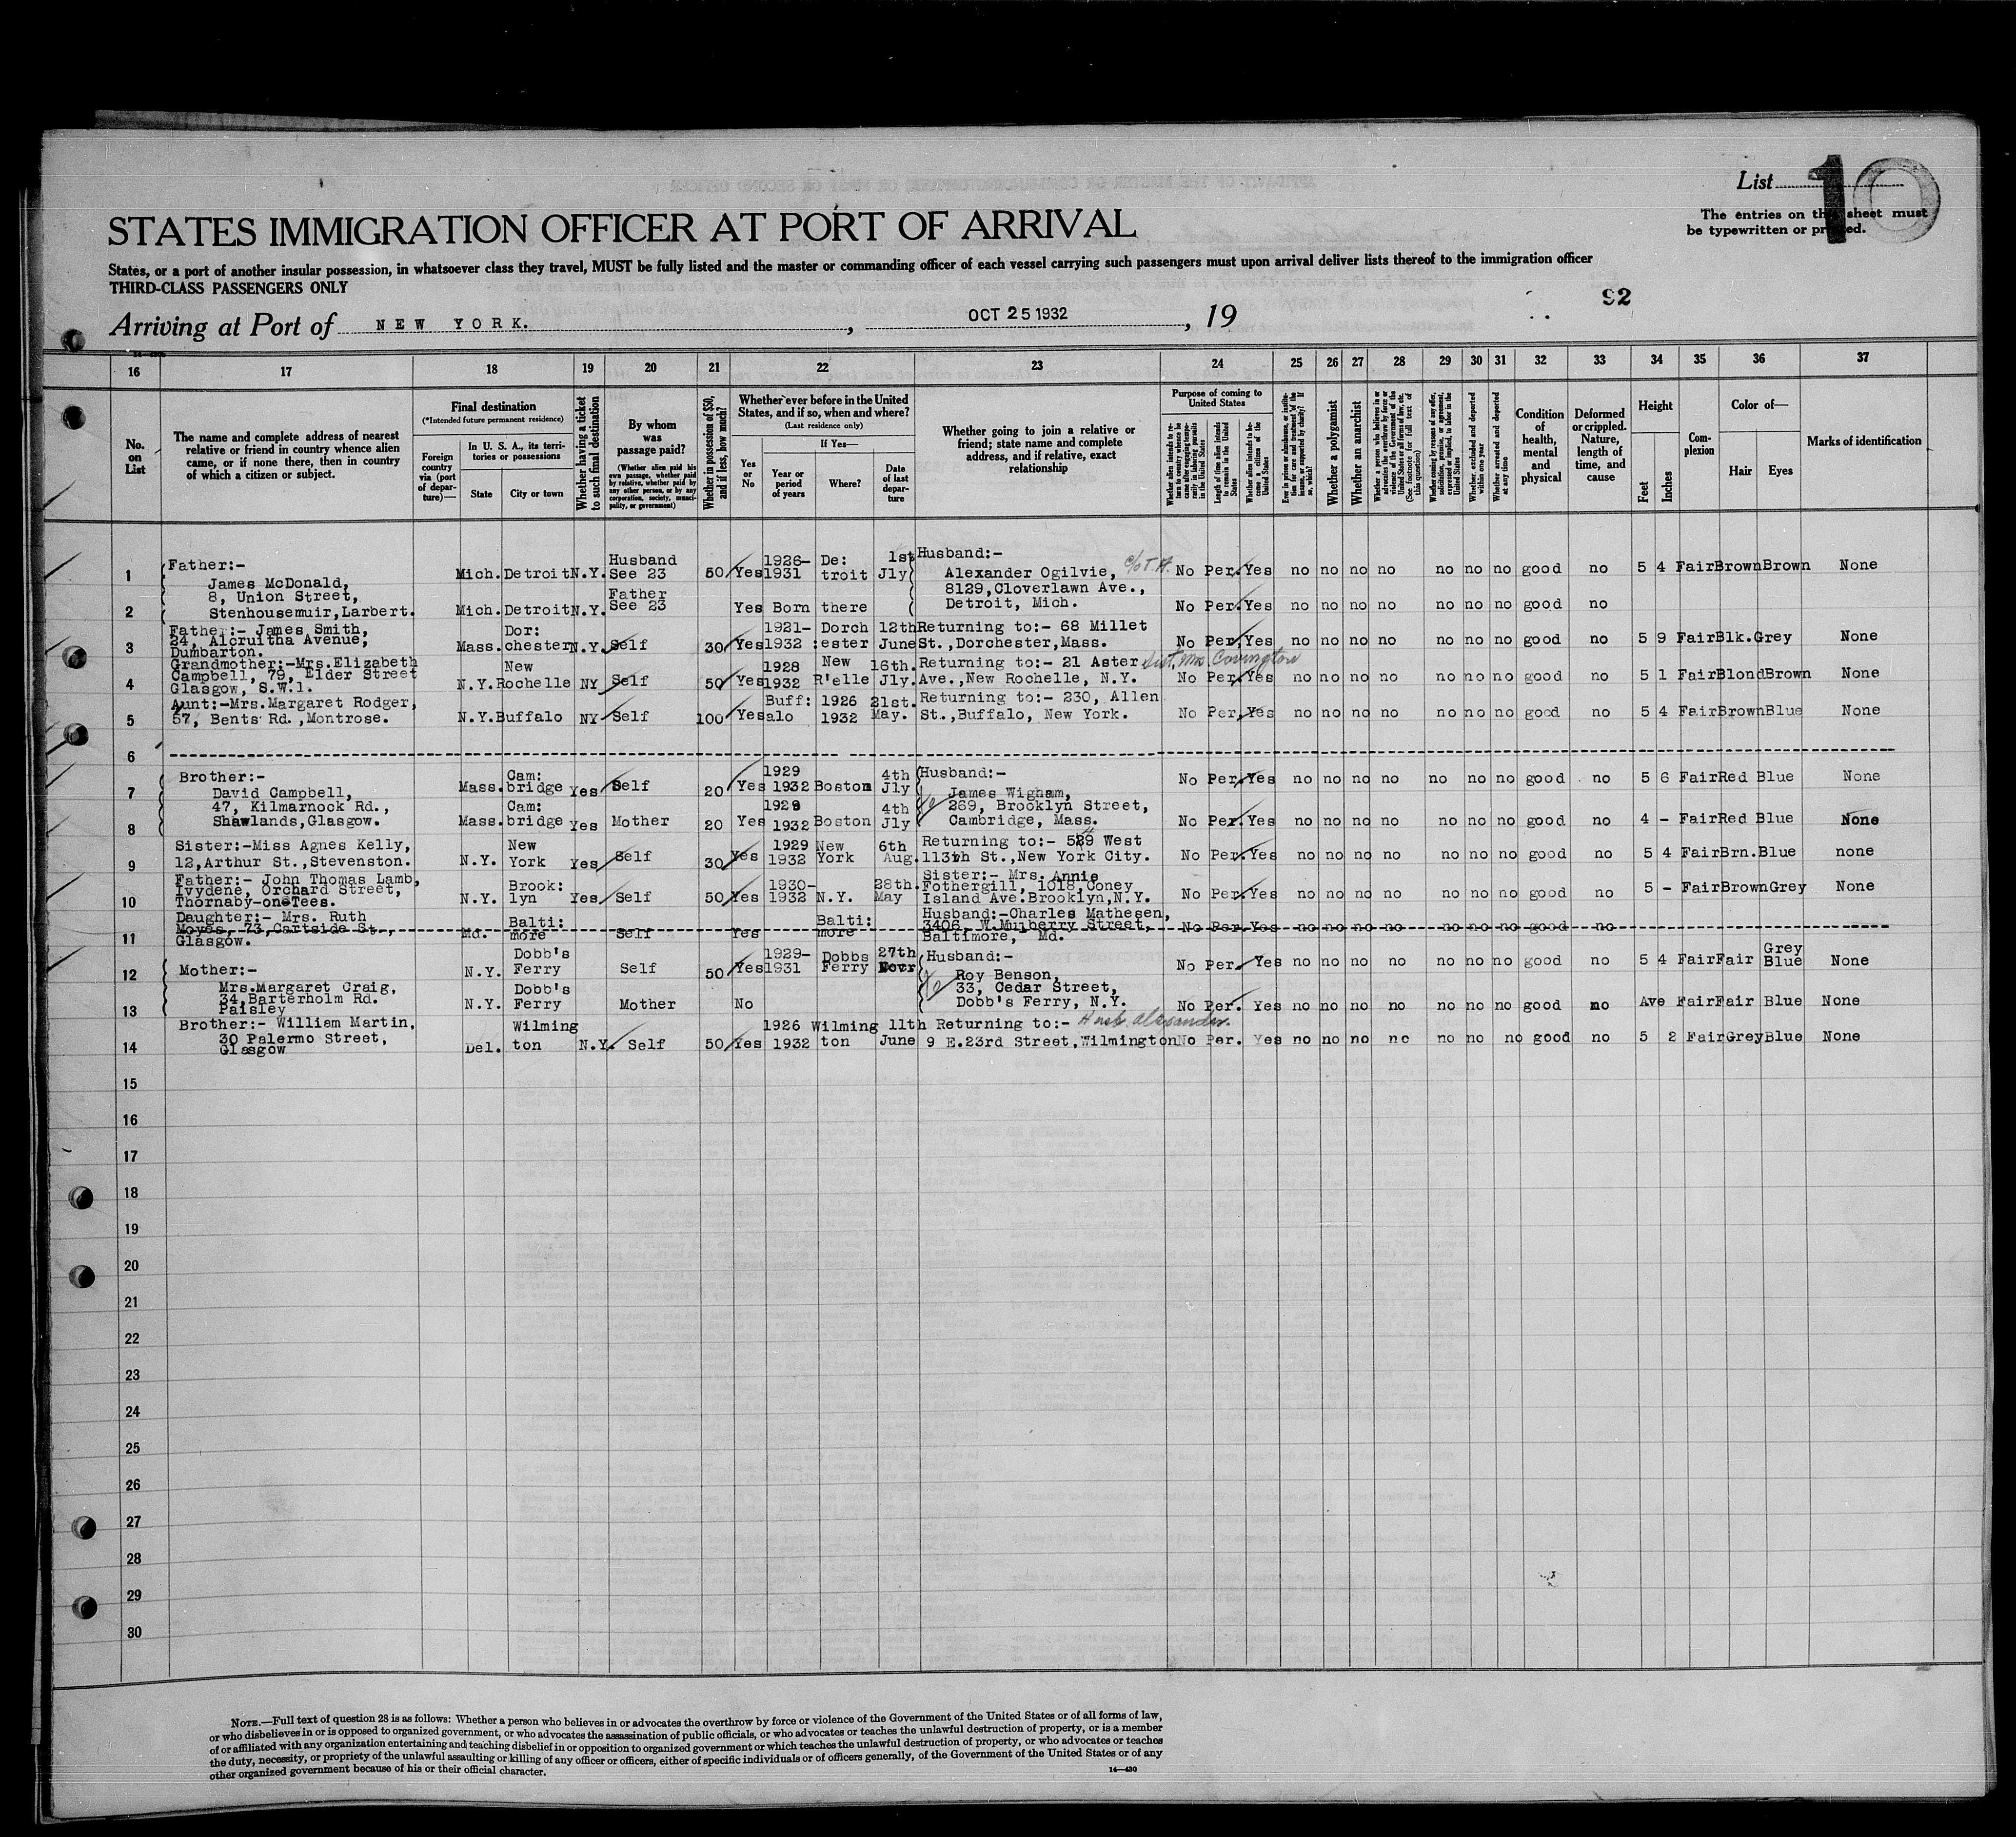 List 10
The entries on this sheet must
be typewritten or printed.
STATES IMMIGRATION OFFICER AT PORT OF ARRIVAL
States, or a port of another insular possession, in whatsoever class they travel, MUST be fully listed and the master or commanding officer of each vessel carrying such passengers must upon arrival deliver lists thereof to the immigration officer
THIRD-CLASS PASSENGERS ONLY
92
Arriving at Port of NEW YORK. , OCT 25 1932 , 19
16 17 18 19 20 21 22 23 24 25 26 27 28 29 30 31 32 33 34 35 36 37
No. on List
The name and complete address of nearest relative or friend in country whence alien came, or if none there, then in country of which a citizen or subject.
Final destination
(*Intended future permanent residence)
Foreign country via (port of departure)—
In U. S. A., its territories or possessions
State
City or town
Whether having a ticket to such final destination
By whom was passage paid?
(Whether alien paid his own passage, whether paid by relative, whether paid by any other person, or by any corporation, society, municipality, or government)
Whether in possession of $50, and if less, how much?
Whether ever before in the United States, and if so, when and where?
(Last residence only)
Yes or No
If Yes—
Year or period of years
Where?
Date of last departure
Whether going to join a relative or friend; state name and complete address, and if relative, exact relationship
Purpose of coming to United States
Whether alien intends to return to country whence he came after engaging temporarily in laboring pursuits in the United States
Length of time alien intends to remain in the United States
Whether alien intends to become a citizen of the United States
Ever in prison or almshouse, or institution for care and treatment of the insane, or supported by charity? If so, which?
Whether a polygamist
Whether an anarchist
Whether a person who believes in or advocates the overthrow by force or violence of the Government of the United States or all forms of law, etc. (See footnote for full text of this question)
Whether coming by reason of any offer, solicitation, promise, or agreement, expressed or implied, to labor in the United States
Whether excluded and deported within one year
Whether arrested and deported at any time
Condition of health, mental and physical
Deformed or crippled. Nature, length of time, and cause
Height
Feet
Inches
Complexion
Color of—
Hair
Eyes
Marks of identification
1 Father:- Mich. Detroit N.Y. Husband See 23 50 Yes 1926-1931 De:troit 1st Jly Husband:- Alexander Ogilvie, c/o T.A. No Per. Yes no no no no no no no good no 5 4 Fair Brown Brown None
James McDonald,
8, Union Street, 8129, Cloverlawn Ave.,
2 Stenhousemuir, Larbert. Mich. Detroit N.Y. Father See 23 Yes Born there Detroit, Mich. No Per. Yes no no no no no no no good no
3 Father:- James Smith, 24, Alcruitha Avenue, Dumbarton. Mass. Dor:chester N.Y. Self 30 Yes 1921-1932 Dorch:ester 12th June Returning to:- 68 Millet St., Dorchester, Mass. No Per. Yes no no no no no no no good no 5 9 Fair Blk. Grey None
4 Grandmother:-Mrs. Elizabeth Campbell, 79, Elder Street Glasgow, S.W.1. N.Y. New Rochelle NY Self 50 Yes 1928 1932 New R'elle 16th. Jly. Returning to:- 21 Aster Ave., New Rochelle, N.Y. Sist. Mrs. Covington No Per. Yes no no no no no no no good no 5 1 Fair Blond Brown None
5 Aunt:-Mrs. Margaret Rodger, 57, Bents Rd., Montrose. N.Y. Buffalo NY Self 100 Yes Buff:alo 1926 1932 21st. May. Returning to:- 230, Allen St., Buffalo, New York. No Per. Yes no no no no no no no good no 5 4 Fair Brown Blue None
6
7 Brother:- David Campbell, Mass. Cam:bridge Yes Self 20 Yes 1929 1932 Boston 4th Jly Husband:- James Wigham, No Per. Yes no no no no no no no good no 5 6 Fair Red Blue None
47, Kilmarnock Rd., 269, Brooklyn Street,
8 Shawlands, Glasgow. Mass. Cam:bridge Yes Mother 20 Yes 1929 1932 Boston 4th Jly Cambridge, Mass. No Per. Yes no no no no no no no good no 4 - Fair Red Blue None
9 Sister:-Miss Agnes Kelly, 12, Arthur St., Stevenston. N.Y. New York Yes Self 30 Yes 1929 1932 New York 6th Aug. Returning to:- 529 West 113th St., New York City. No Per. Yes no no no no no no no good no 5 4 Fair Brn. Blue none
10 Father:- John Thomas Lamb, Ivydene, Orchard Street, Thornaby-on-Tees. N.Y. Brook:lyn Yes Self 50 Yes 1930-1932 N.Y. 28th. May Sister:- Mrs. Annie Fothergill, 1018, Coney Island Ave. Brooklyn, N.Y. No Per. Yes no no no no no no no good no 5 - Fair Brown Grey None
11 Daughter:- Mrs. Ruth Moyes, 73, Cartside St., Glasgow. Md. Balti:more Self Yes Balti:more Husband:-Charles Mathesen, 3406, W. Mulberry Street, Baltimore, Md. No Per. Yes no no no no no no no good no
12 Mother:- N.Y. Dobb's Ferry Self 50 Yes 1929-1931 Dobbs Ferry 27th Novr Husband:- Roy Benson, No Per. Yes no no no no no no no good no 5 4 Fair Fair Grey Blue None
Mrs. Margaret Craig, 33, Cedar Street,
13 34, Barterholm Rd. Paisley N.Y. Dobb's Ferry Mother No Dobb's Ferry, N.Y. No Per. Yes no no no no no no no good no Ave Fair Fair Blue None
14 Brother:- William Martin, 30 Palermo Street, Glasgow Del. Wilmington N.Y. Self 50 Yes 1926 1932 Wilmington 11th June Returning to:- Husb. Alexander. 9 E. 23rd Street, Wilmington No Per. Yes no no no no no no no good no 5 2 Fair Grey Blue None
15
16
17
18
19
20
21
22
23
24
25
26
27
28
29
30
NOTE.—Full text of question 28 is as follows: Whether a person who believes in or advocates the overthrow by force or violence of the Government of the United States or of all forms of law,
or who disbelieves in or is opposed to organized government, or who advocates the assassination of public officials, or who advocates or teaches the unlawful destruction of property, or is a member
of or affiliated with any organization entertaining and teaching disbelief in or opposition to organized government or which teaches the unlawful destruction of property, or who advocates or teaches
the duty, necessity, or propriety of the unlawful assaulting or killing of any officer or officers, either of specific individuals or of officers generally, of the Government of the United States or of any
other organized government because of his or their official character.
14—430